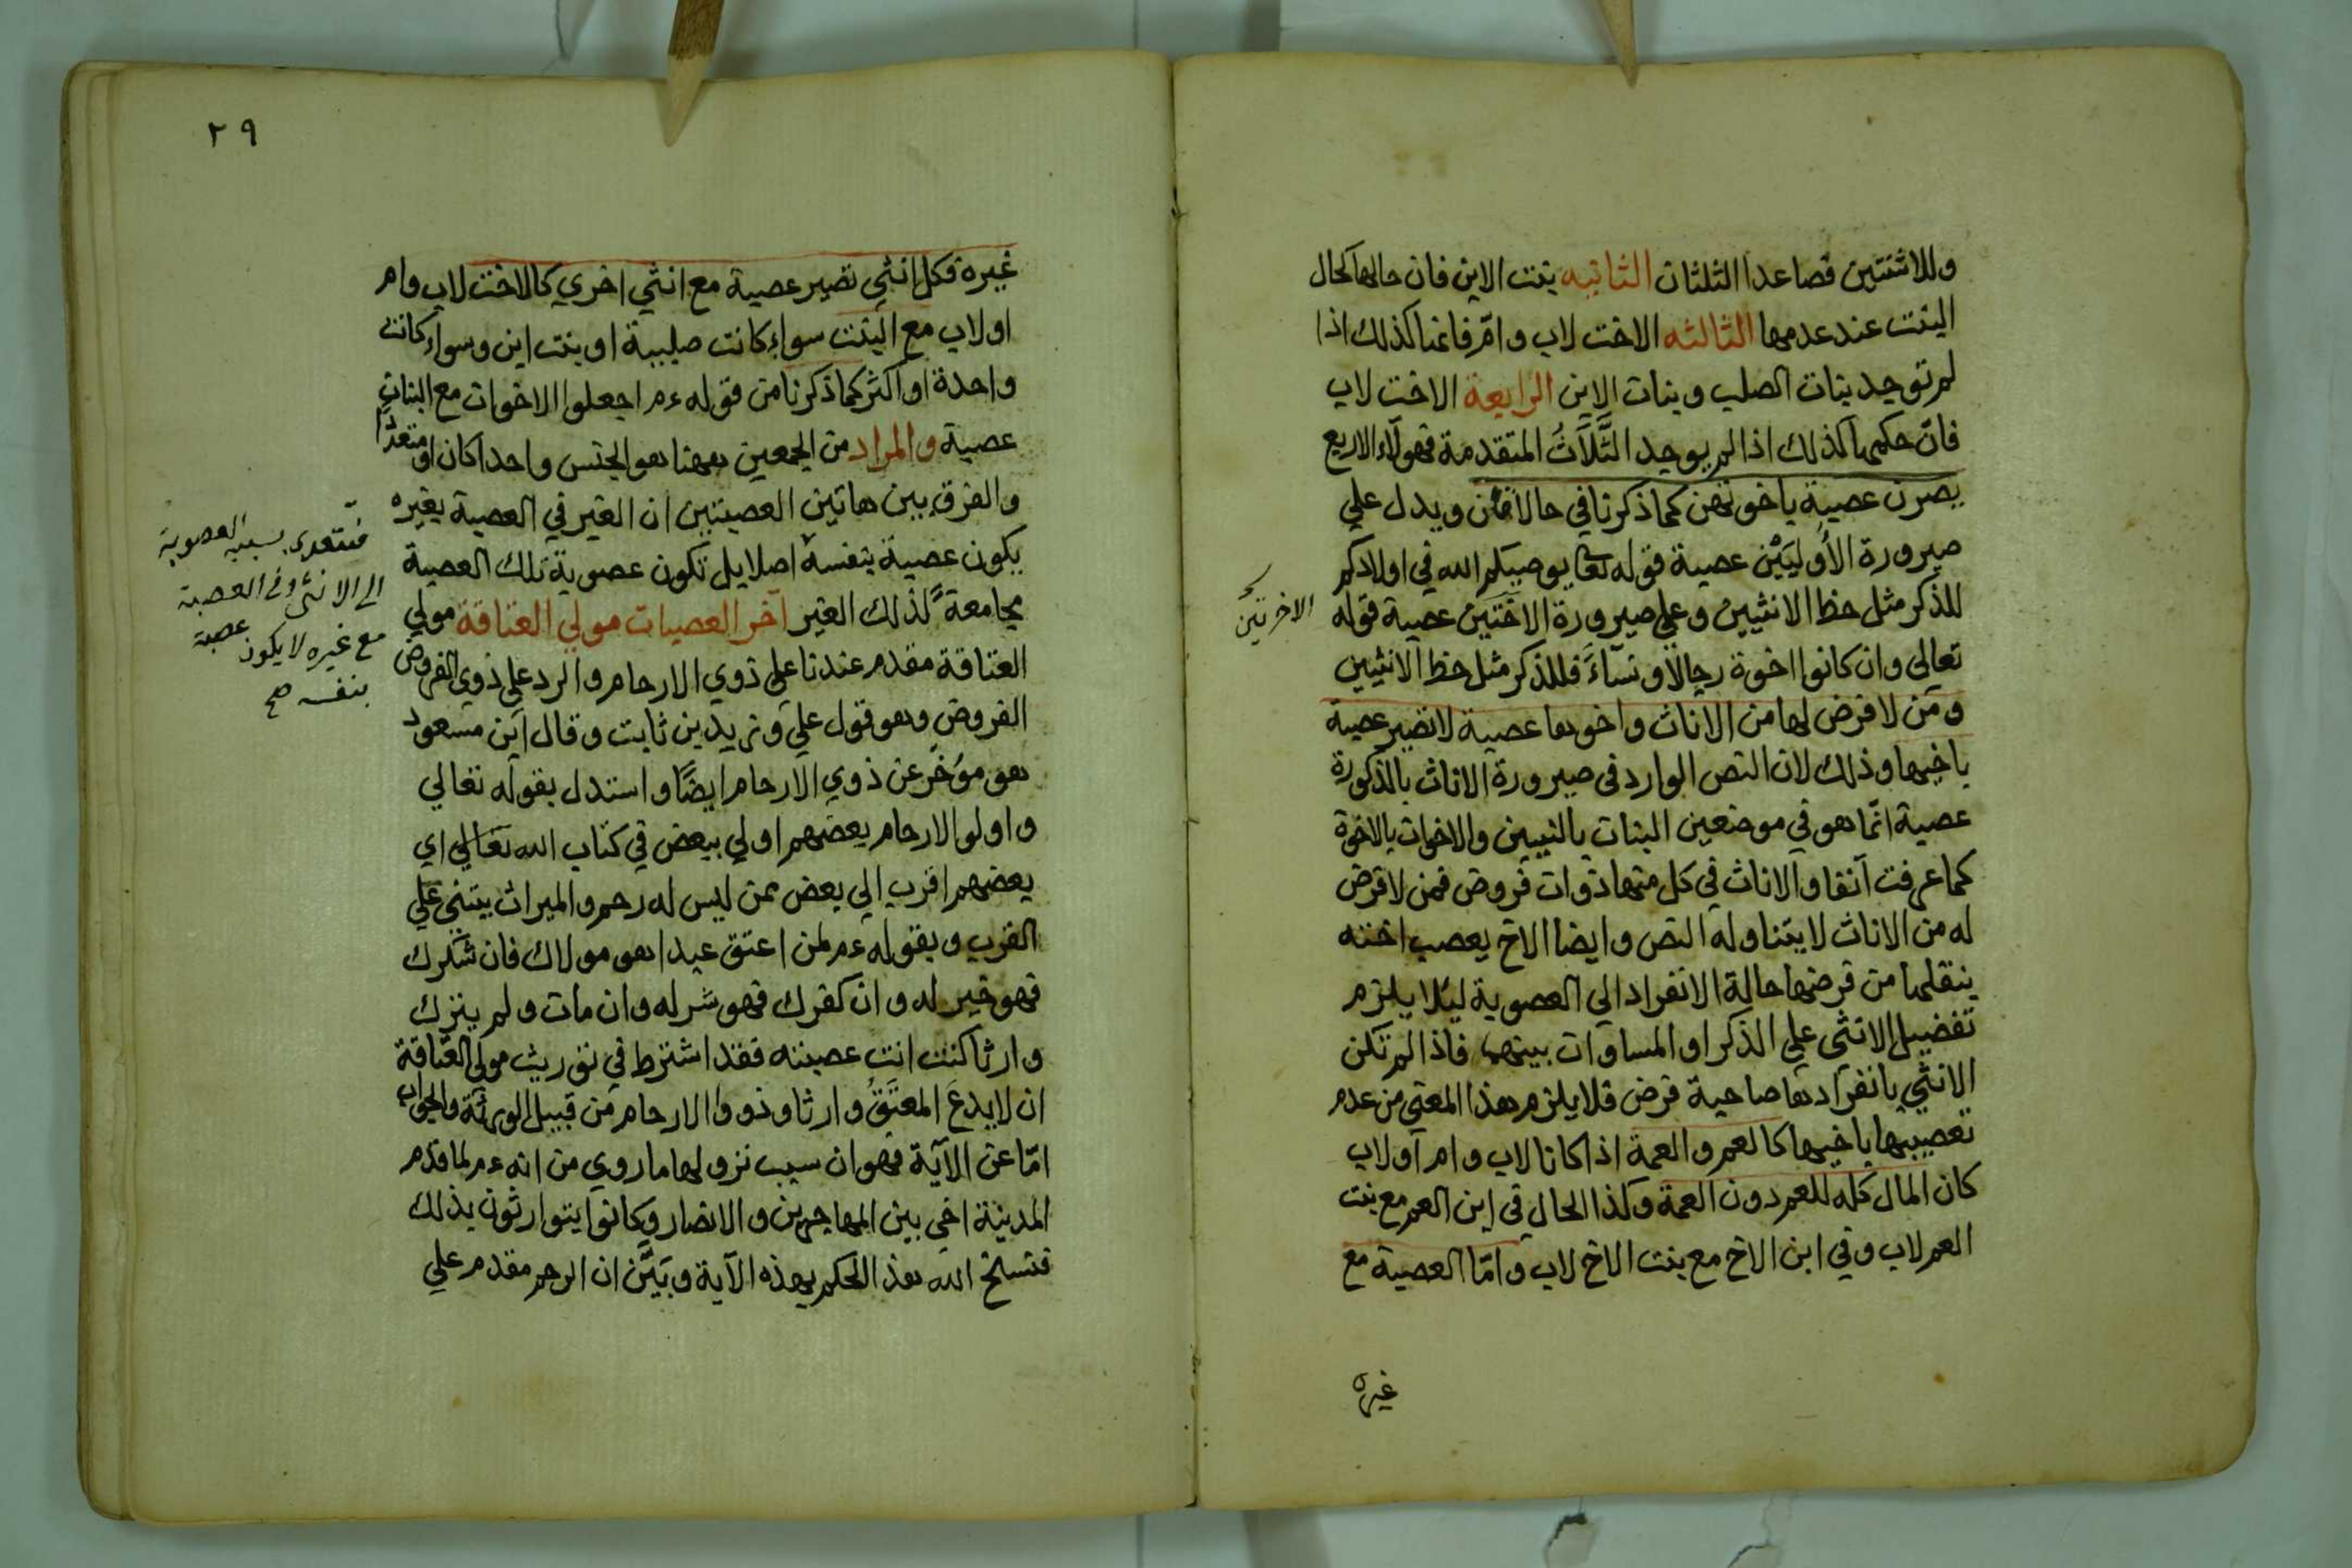 وللاثنتين فصاعدا الثلثان الثانيه بنت الابن فان حالها كحال
البنت عند عدمها الثالثه الاخت لاب وامّ فانها كذلك اذا
لم توجد بنات الصلب وبنات الابن الرابعة الاخت لاب
فانّ حكمها كذلك اذا لم يوجد الثَّلَاثُ المتقدمة فهولآء الاربع
يصرن عصبة باخوتهن كما ذكرنا في حالاتهن ويدل علي
صيرورة الأُوليَيْن عصبة قوله تعا يوصيكم الله في اولادكم
للذكر مثل حظ الانثيين وعلي صيرورة الاختين عصبة قوله
الاخرتين
تعالي وان كانوا اخوة رجالا ونسآءً فللذكر مثل حظ الانثيين
ومَن لا فرض لها من الاناث واخوها عصبة لا تصير عصبة
باخيها وذلك لان النص الوارد في صيرورة الاناث بالذكورة
عصبة انّما هو في موضعين البنات بالبنين والاخوات بالاخوة
كما عرفت آنفا والاناث في كل منهما ذوات فروض فمن لا فرض
له من الاناث لا يتناوله النص وايضا الاخ يعصب اخته
بنقلها من فرضها حالة الانفراد الي العصوبة ليلا يلزم
تفضيل الانثي علي الذكر او المساوات بينهما فاذا لم تكن
الانثي بانفرادها صاحبة فرض فلا يلزم هذا المعني من عدم
تعصيبها باخيها كالعم والعمة اذا كانا لاب وام او لاب
كان المال كله للعم دون العمة وكذا الحال في ابن العم مع بنت
العم لاب وفي ابن الاخ مع بنت الاخ لاب وامّا العصبة مع
غيره
٢٩
غيره فكل انثي تصير عصبة مع انثي اخري كالاخت لاب وام
او لاب مع البنت سواء كانت صلبية او بنت ابن وسواء كانت
واحدة او اكثر كما ذكرنا من قوله ءم اجعلوا الاخوات مع البنات
عصبة والمراد من الجمعين ههنا هو الجنس واحدا كان او متعددًا
والفرق بين هاتين العصبتين ان الغير في العصبة بغيره
يكون عصبة بنفسه اصلا بل تكون عصوبة تلك العصبة
فتتعدي بسببه العصوبة
الي الانثي وفي العصبة
مع غيره لا يكون عصبة
بنفسه صح
مجامعةً لذلك الغير آخر العصبات مولي العتاقة مولي
العتاقة مقدم عندنا علي ذوي الارحام والرد علي ذوي الفروض
الفروض وهو قول علي وزيد بن ثابت وقال ابن مسعود
هو مؤخر عن ذوي الارحام ايضًا واستدل بقوله تعالي
واولوا الارحام بعضهم اولي ببعض في كتاب الله تعالي اي
بعضهم اقرب الي بعض ممن ليس له رحم والميراث يبتني علي
القرب وبقوله ءم لمن اعتق عبدا هو مولاك فان شكرك
فهو خير له وان كفرك فهو شر له وان مات ولم يترك
وارثا كنت انت عصبته فقد اشترط في توريث مولي العتاقة
ان لا يدعَ المعتَقُ وارثا وذووا الارحام من قبيل الورثة والجواب
امّا عن الآية فهو ان سبب نزولها ما روي من انه ءم لما قدم
المدينة اخي بين المهاجرين والانصار وكانوا يتوارثون بذلك
فنسخ الله هذا الحكم بهذه الآية وبَيَّن ان الرحم مقدم علي